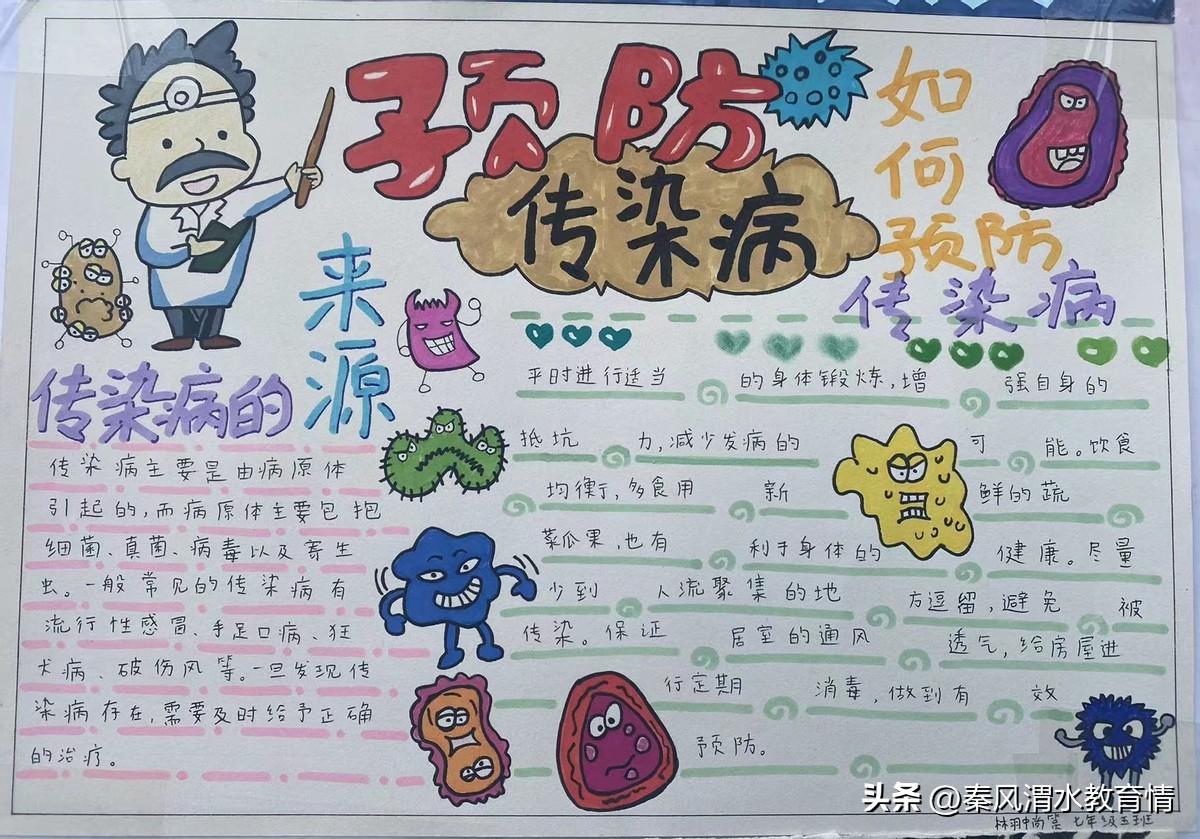 预防
传染病
如何
预防
传染病
来源
传染病的
传染病主要是由病原体
引起的,而病原体主要包抱
细菌、真菌、病毒以及寄生
虫。一般常见的传染病有
流行性感冒、手足口病、狂
犬病、破伤风等。一旦发现传
染病存在,需要及时给予正确
的治疗。
平时进行适当 的身体锻炼,增 强自身的
抵坑 力,减少发病的 可 能。饮食
均衡,多食用 新 鲜的蔬
菜瓜果,也有 利于身体的 健康。尽量
少到 人流聚集的地 方逗留,避免 被
传染。保证 居室的通风 透气,给房屋进
行定期 消毒,做到有 效
预防。
头条 @秦风渭水教育情
七年级五班